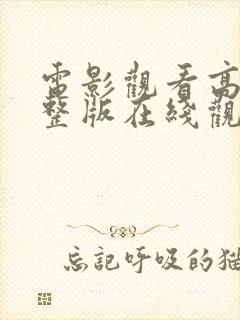 電影觀看高
整版在綫觀
忘記呼吸的猫